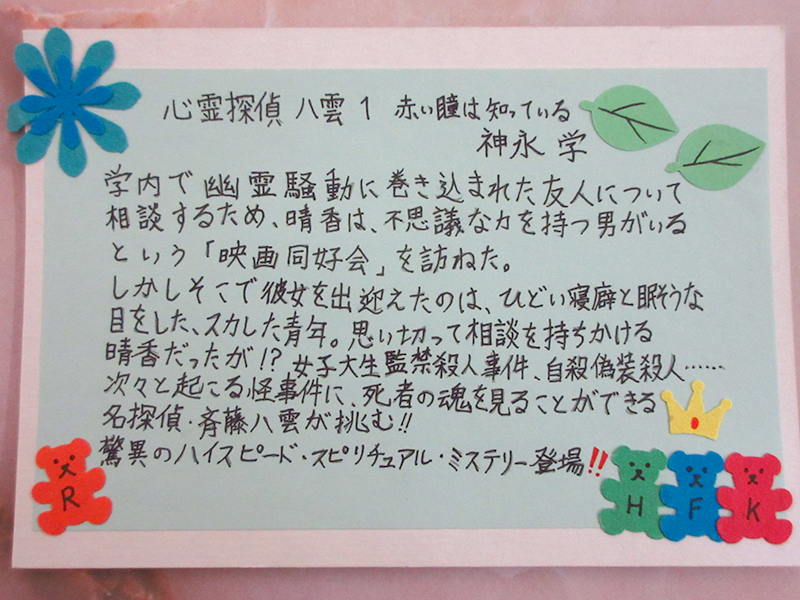 心霊探偵 八雲 1 赤い瞳は知っている
神永 学
学内で幽霊騒動に巻き込まれた友人について
相談するため、晴香は、不思議な力を持つ男がいる
という「映画同好会」を訪ねた。
しかしそこで彼女を出迎えたのは、ひどい寝癖と眠そうな
目をした、スカした青年。思い切って相談を持ちかける
晴香だったが!? 女子大生監禁殺人事件、自殺偽装殺人……
次々と起こる怪事件に、死者の魂を見ることができる
名探偵・斉藤八雲が挑む!!
驚異のハイスピード・スピリチュアル・ミステリー登場!!
R
H F K